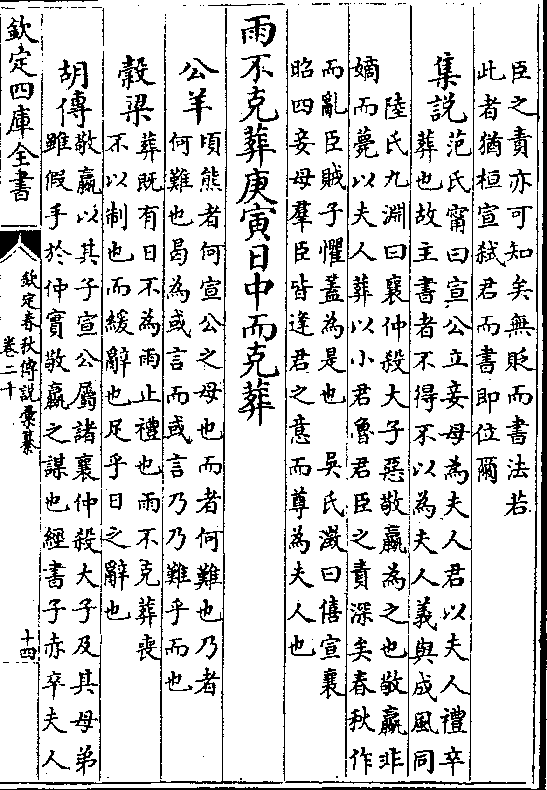 臣之責亦可知矣無貶而書法若
此者猶桓宣弑君而書即位爾
集說
范氏甯曰宣公立妾母為夫人君以夫人禮卒
葬也故主書者不得不以為夫人義與成風同
陸氏九淵曰襄仲殺大子惡敬嬴為之也敬嬴非
嫡而薨以夫人葬以小君魯君臣之責深矣春秋作
而亂臣賊子懼蓋為是也　吳氏澂曰僖宣襄
昭四妾母羣臣皆逢君之意而尊為夫人也
雨不克葬庚寅日中而克葬
公羊
頃熊者何宣公之母也而者何難也乃者
何難也曷為或言而或言乃乃難乎而也
穀梁
葬既有日不為雨止禮也雨不克葬喪
不以制也而緩辭也足乎日之辭也
胡傳
敬嬴以其子宣公屬諸襄仲殺大子及其母弟
雖假手於仲實敬嬴之謀也經書子赤卒夫人
欽定四庫全書
欽定春秋傳說彙纂
卷二十
十四